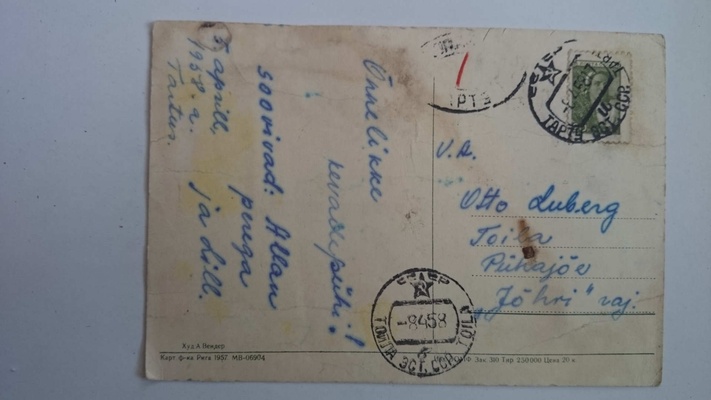 Õnnelikke
kevadepühi!
soovivad: Allan
perega
ja Lill.
5 aprill,
1958. a.
Tartus.
V. A.
Otto Luberg
Toila
Pühajõe
"Jõhvi" raj.
СССР
ТАРТУ ЭСТ. ССР
СССР
-8458
ТОЙЛА ЭСТ. ССР TOILA
Худ А Вендер
Карт. ф-ка Рига 1957 МВ-06974
Зак. 310 Тир 250000 Цена 20 к.